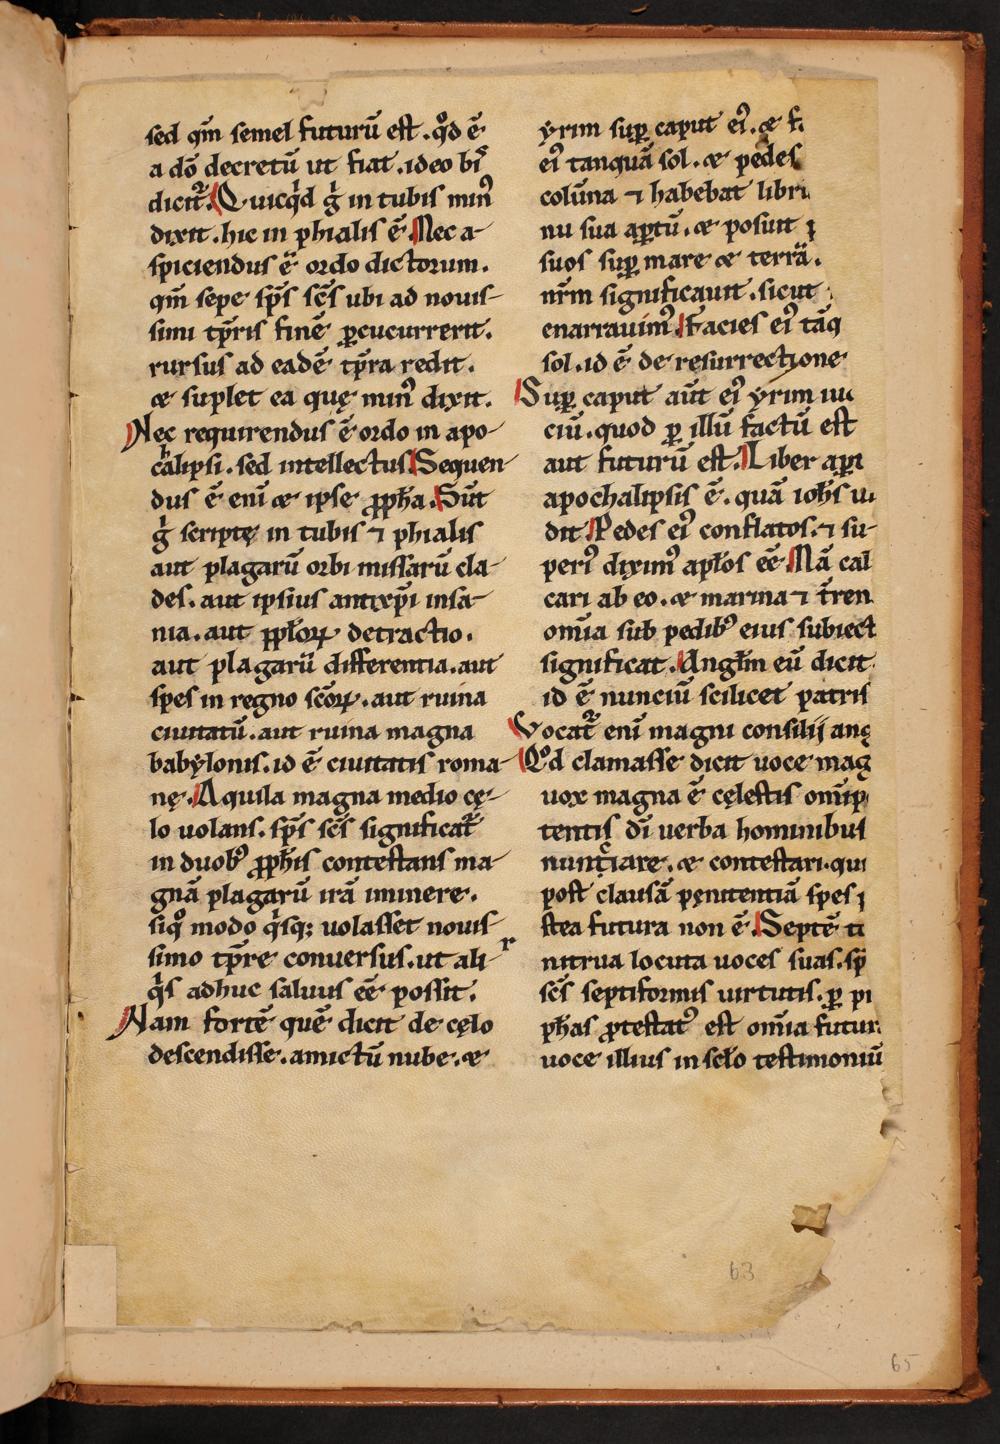 sed qm̄ semel futurū est. qͦd ē
a dō decretū ut fiat. ideo bı̄ſ
dicit᷑. Quicqͥd gͥ in tubis minꝰ
dixit. hic in phialis ē. Nec a-
spiciendus ē ordo dictorum.
qm̄ sepe sp̄s sc̄s ubi ad nouis-
simi tp̄ris finē ꝑcucurrerit.
rursus ad eadē tp̄ra redit.
æ suplet ea quę minꝰ dixit.
Nec requirendus ē ordo in apo-
calipsi. sed intellectus. Sequen-
dus ē enī æ ipse ꝓph̄a. Sūt
gͥ scriptę in tubis ⁊ phialis
aut plagarū orbi missarū cla-
des. aut ipsius antixp̄i insa-
nia. aut ꝓpłoꝝ detractio.
aut plagarū differentia. aut
spes in regno sc̄oꝝ. aut ruina
ciuitatū. aut ruina magna
babẏlonis. id ē ciuitatis roma-
nę. Aquila magna medio cę-
lo uolans. sp̄s sc̄s significat᷑
in duobꝰ ꝓph̄is contestans ma-
gnā plagarū irā iminere.
siqͦ modo qͥsq; uolasset nouis-
simo tp̄re conuersus. ut ali-
qͥs adhuc saluus eē possit.
Nam fortē quē dicit de cęlo
descendisse. amictū nube. æ
ẏrim suꝑ caput eiꝰ. æ f
eiꝰ tanquā sol. æ pedes
colūna ⁊ habebat libri
nu sua aꝑtū. æ posuit
suos suꝑ mare æ terrā.
nr̄m significauit. sicut
enarrauimꝰ. Facies eiꝰ tāq
sol. id ē de resurrectione
Suꝑ caput aūt eiꝰ ẏrim iu
ciū. quod ꝑ illū factū est
aut futurū est. Liber aꝑt
apochalipsis ē. quā ioh̄s ui
dit. Pedes eiꝰ conflatos. ⁊ su-
periꝰ diximꝰ apłos eē. Nā cal
cari ab eo. æ marina ⁊ t̄ren
om̄ia sub pedibꝰ eius subiect
significat. Angłm eū dicit
id ē nunciū scilicet patris
Vocat᷑ enī magni consilij ang
Qͦd clamasse dicit uoce mag
uox magna ē cęlestis om̄ip
tentis dī uerba hominibus
nuntiare. æ contestari. qui
post clausā pęnitentiā spes
stea futura non ē. Septē ti
nitrua locuta uoces suas. sp̄
sc̄s septiformis uirtutis. ꝑ
phas ꝓtestatꝰ est om̄ia futur
uoce illius in scło testimoniū
63
65